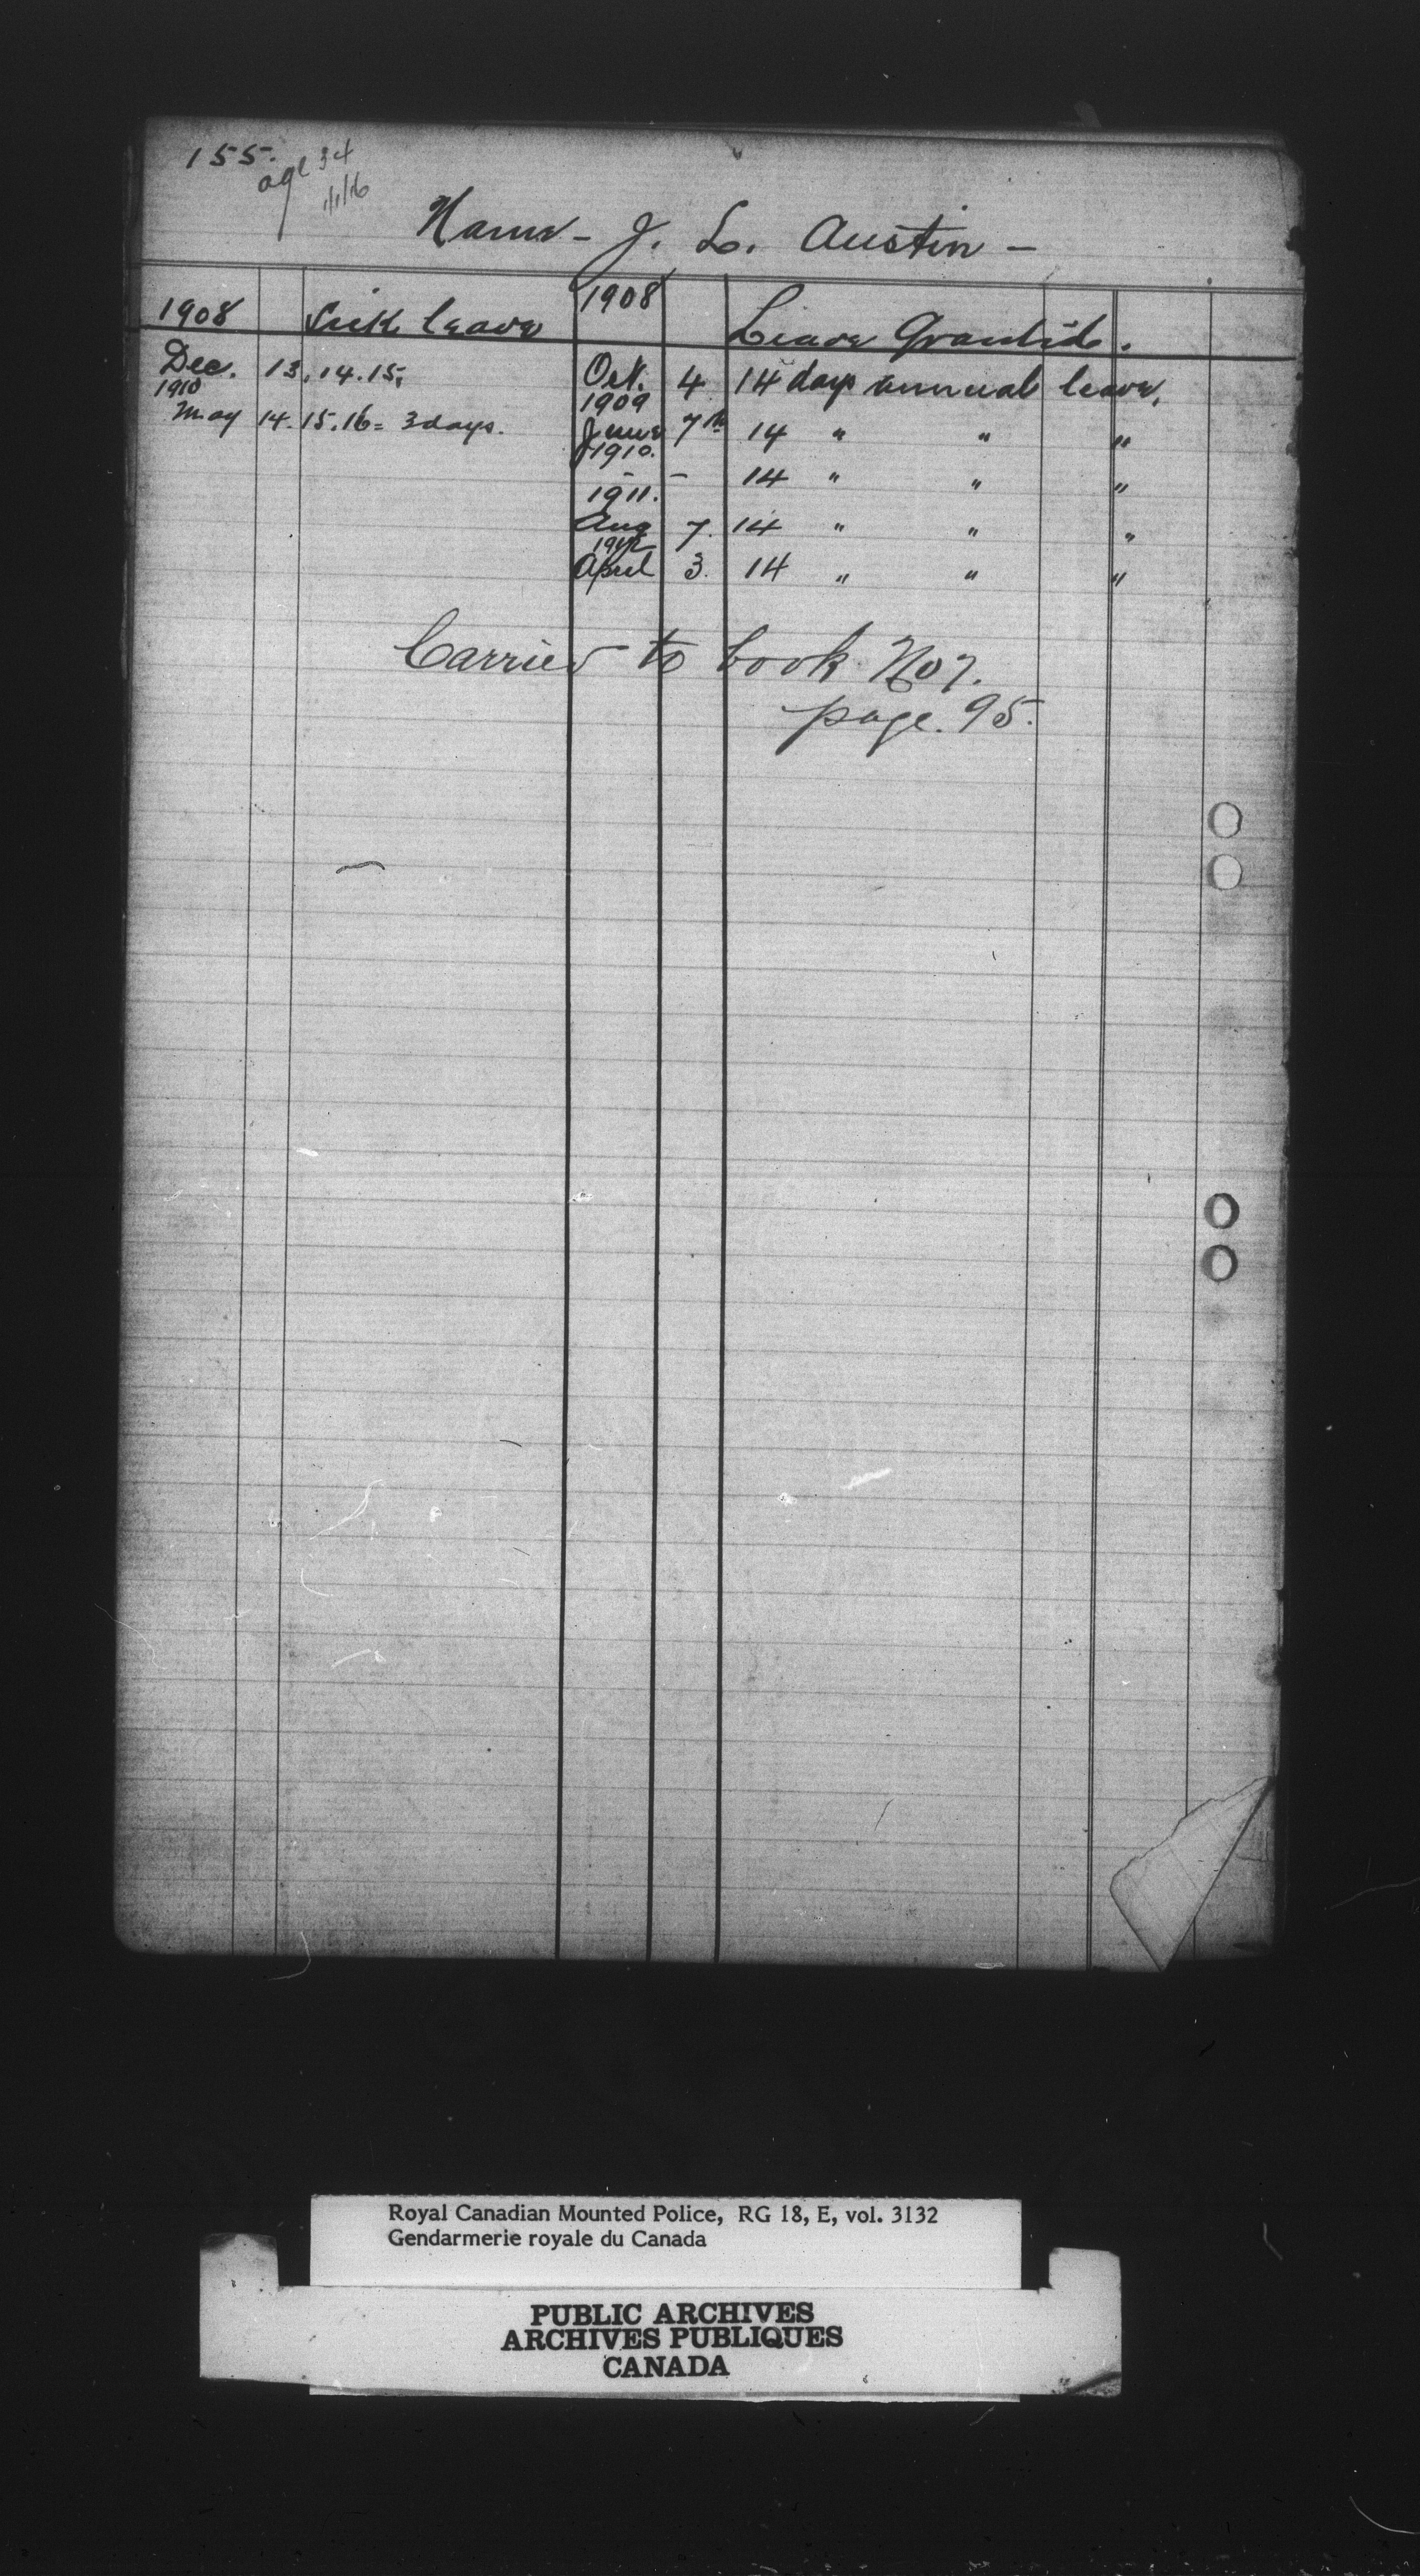 155.
age 34
1/1/16
Name - J. L. Austin -
1908 Sick leave 1908 Leave Granted.
Dec. 13, 14. 15, Oct. 4 14 days annual leave.
1910 1909
May 14. 15. 16 = 3 days. June 7th 14 " " "
1910.
- - 14 " " "
1911.
Aug 7. 14 " " "
1912
April 3. 14 " " "
Carried to book No 7.
page. 95.
Royal Canadian Mounted Police, RG 18, E, vol. 3132
Gendarmerie royale du Canada
PUBLIC ARCHIVES
ARCHIVES PUBLIQUES
CANADA